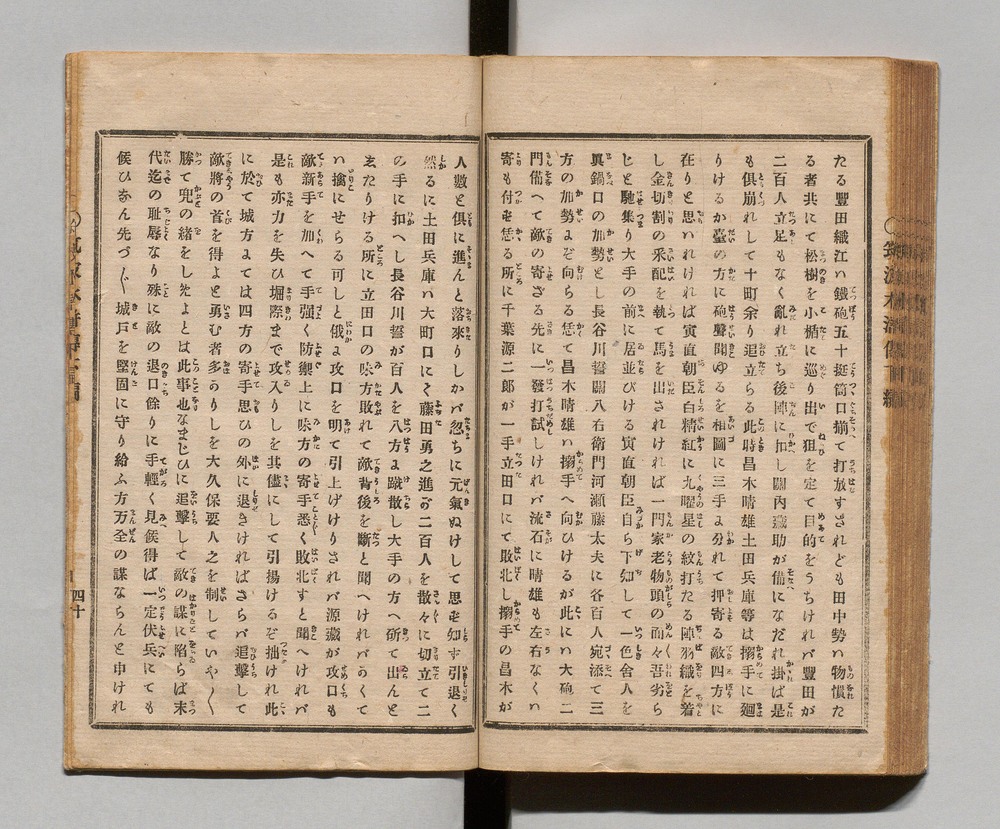 たる豐田織江ハ鐵砲五十挺筒口揃て打放すされども田中勢ハ物慣た
る者共にて松樹を小楯に巡り出で狙を定て目的をうちけれバ豐田が
二百人立足もなく亂れ立ち後陣に扣し關內藏助が備になだれ掛ば是
も俱崩れして十町余り追立らる此時昌木晴雄土田兵庫等は搦手に廻
りけるか臺の方に砲聲聞ゆるを相圖に三手よ分れて押寄る敵四方に
在りと思ハれければ寅直朝臣白精紅に九曜星の紋打たる陣羽織を着
し金切割の釆配を執て馬を出されければ一門家老物頭の面々吾劣ら
じと馳集り大手の前に居並びける寅直朝臣自ら下知して一色舍人を
眞鍋口の加勢とし長谷川誓關八右衛門河瀬藤太夫に谷百人宛添て三
方の加勢よぞ向らる恁て昌木晴雄ハ搦手へ向ひけるが此にハ大砲二
門備へて敵の寄ざる先に一發打試しけれバ流石に晴雄も左右なくハ
寄も付ず恁る所に千葉源二郎が一手立田口にて敗北し搦手の昌木が
人數と俱に進んと落來りしかバ忽ちに元氣ぬけして思ず知す引退く
然るに土田兵庫ハ大町口にて藤田勇之進が二百人を散々に切立て二
の手に扣へし長谷川誓が百人を八方よ蹴散し大手の方へ斫て出んと
ゑたりける所に立田口の味方敗れて敵背後を斷と聞へけれバかくて
ハ擒にせらる可しと俄よ攻口を明て引上げけりされバ源藏が攻口も
敵新手を加へて手强く防禦上に味方の寄手悉く敗北すと聞へけれバ
是も亦力を失ひ堀際まで攻入りしを其儘にして引揚けるぞ拙けれ此
に於て城方よては四方の寄手思ひの外に退きければさらバ追擊して
敵將の首を得よと勇む者多かりしを大久保要人之を制していや〱
勝て兜の緒をしめよとは此事也なまじひに追擊して敵の謀に陷らば末
代迄の耻辱なり殊に敵の退口餘りに手輕く見候得ば一定伏兵にても
候ひなん先づ〱城戶を堅固に守り給ふ方万全の謀ならんと申けれ
四十